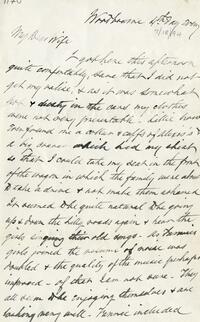 Woodbourne 4th Day Evng
7/18/94
My Dear Wife
I got here this afternoon
quite comfortably, save that I did not
get my valise, & as it was somewhat
hot & dusty in the cars my clothes
were not very presentable.
found me a collar &
a big manner which hid my chest
so that I could take my seat in the front
of the wagon in which the family were about
to take a drive & not make them ashamed
It seemed quite natural to be going
up & down the hilly roads again & hear the
girls singing their old songs. As
girls joined the volume of noise was
doubled & the quality of the music perhaps
improved - of that I am not sure - They
all seem to be enjoying themselves & are
looking very well - included